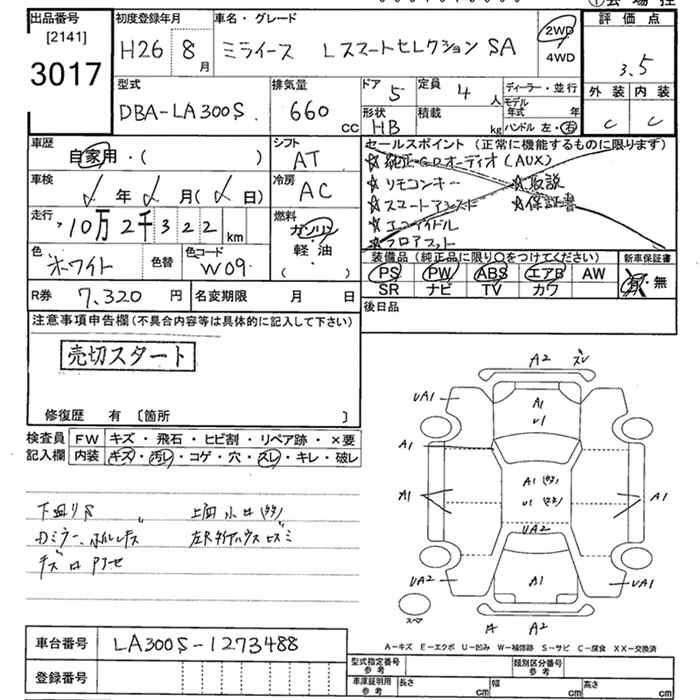 出品番号
[2141]
3017
初度登録年月
H26 8月
車名・グレード
ミライース Lスマートセレクション SA
2WD
4WD
評価点
3.5
外装 内装
C C
型式
DBA-LA300S
排気量
660 CC
ドア 5
定員 4 人
形状 HB
積載 kg
ディーラー・並行
モデル年式 年
ハンドル 左・右
車歴
自家用・( )
シフト
AT
セールスポイント (正常に機能するものに限ります)
☆純正CDオーディオ(AUX)
☆リモコンキー ☆取説
☆スマートアシスト ☆保証書
☆エコアイドル
☆フロアマット
車検
年 月( 日)
冷房
AC
走行
10万2千322km
燃料
ガソリン
軽・油
( ・ )
色
ホワイト
色替
色コード
W09
装備品 (純正品に限り○をつけてください)
PS PW ABS エアB AW
SR ナビ TV カワ
新車保証書
有・無
R券 7,320円
名変期限 月 日
後日品
注意事項申告欄 (不具合内容等は具体的に記入して下さい)
売切スタート
修復歴 有 〔箇所 〕
検査員記入欄
FW キズ・飛石・ヒビ割・リペア跡・×要
内装 キズ・汚レ・コゲ・穴・スレ・キレ・破レ
下廻りS
A2 ズレ
UA1
A1
U1
A1
A1
A1
U1
A1
UA2
UA2
A1
UA1
スペア
A2
A-キズ E-エクボ U-凹み W-補修跡 S-サビ C-腐食 XX-交換済
車台番号 LA300S-1273488
登録番号
型式指定番号 参考
類別区分番号 参考
車庫証明用 参考
長さ cm 幅 cm 高さ cm